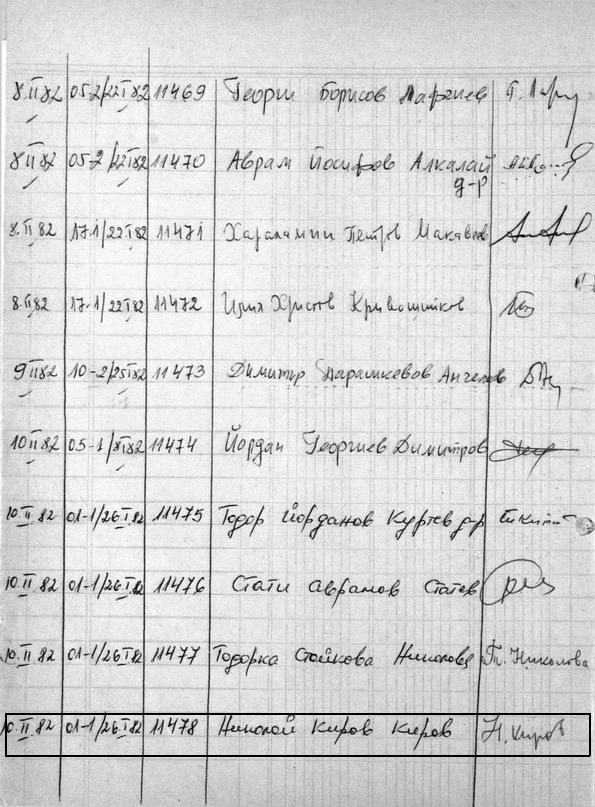 8.II.82 05-2/22.I.82 11469 Георги Борисов Маргиев
8.II.82 05-2/22.I.82 11470 Аврам Йосифов Алкалай
д-р
8.II.82 17-1/22.I.82 11471 Харалампи Петров Макавеев
8.II.82 17-1/22.I.82 11472 Илия Христов Кривошийков
9.II.82 10-2/25.I.82 11473 Димитър Парашкевов Ангелов
10.II.82 05-1/8.I.82 11474 Йордан Георгиев Димитров
10.II.82 01-1/26.I.82 11475 Тодор Йорданов Куртев д-р
10.II.82 01-1/26.I.82 11476 Стати Аврамов Статев
10.II.82 01-1/26.I.82 11477 Тодорка Стойкова Николова Т. Николова
10.II.82 01-1/26.I.82 11478 Николай Киров Киров Н. Киров